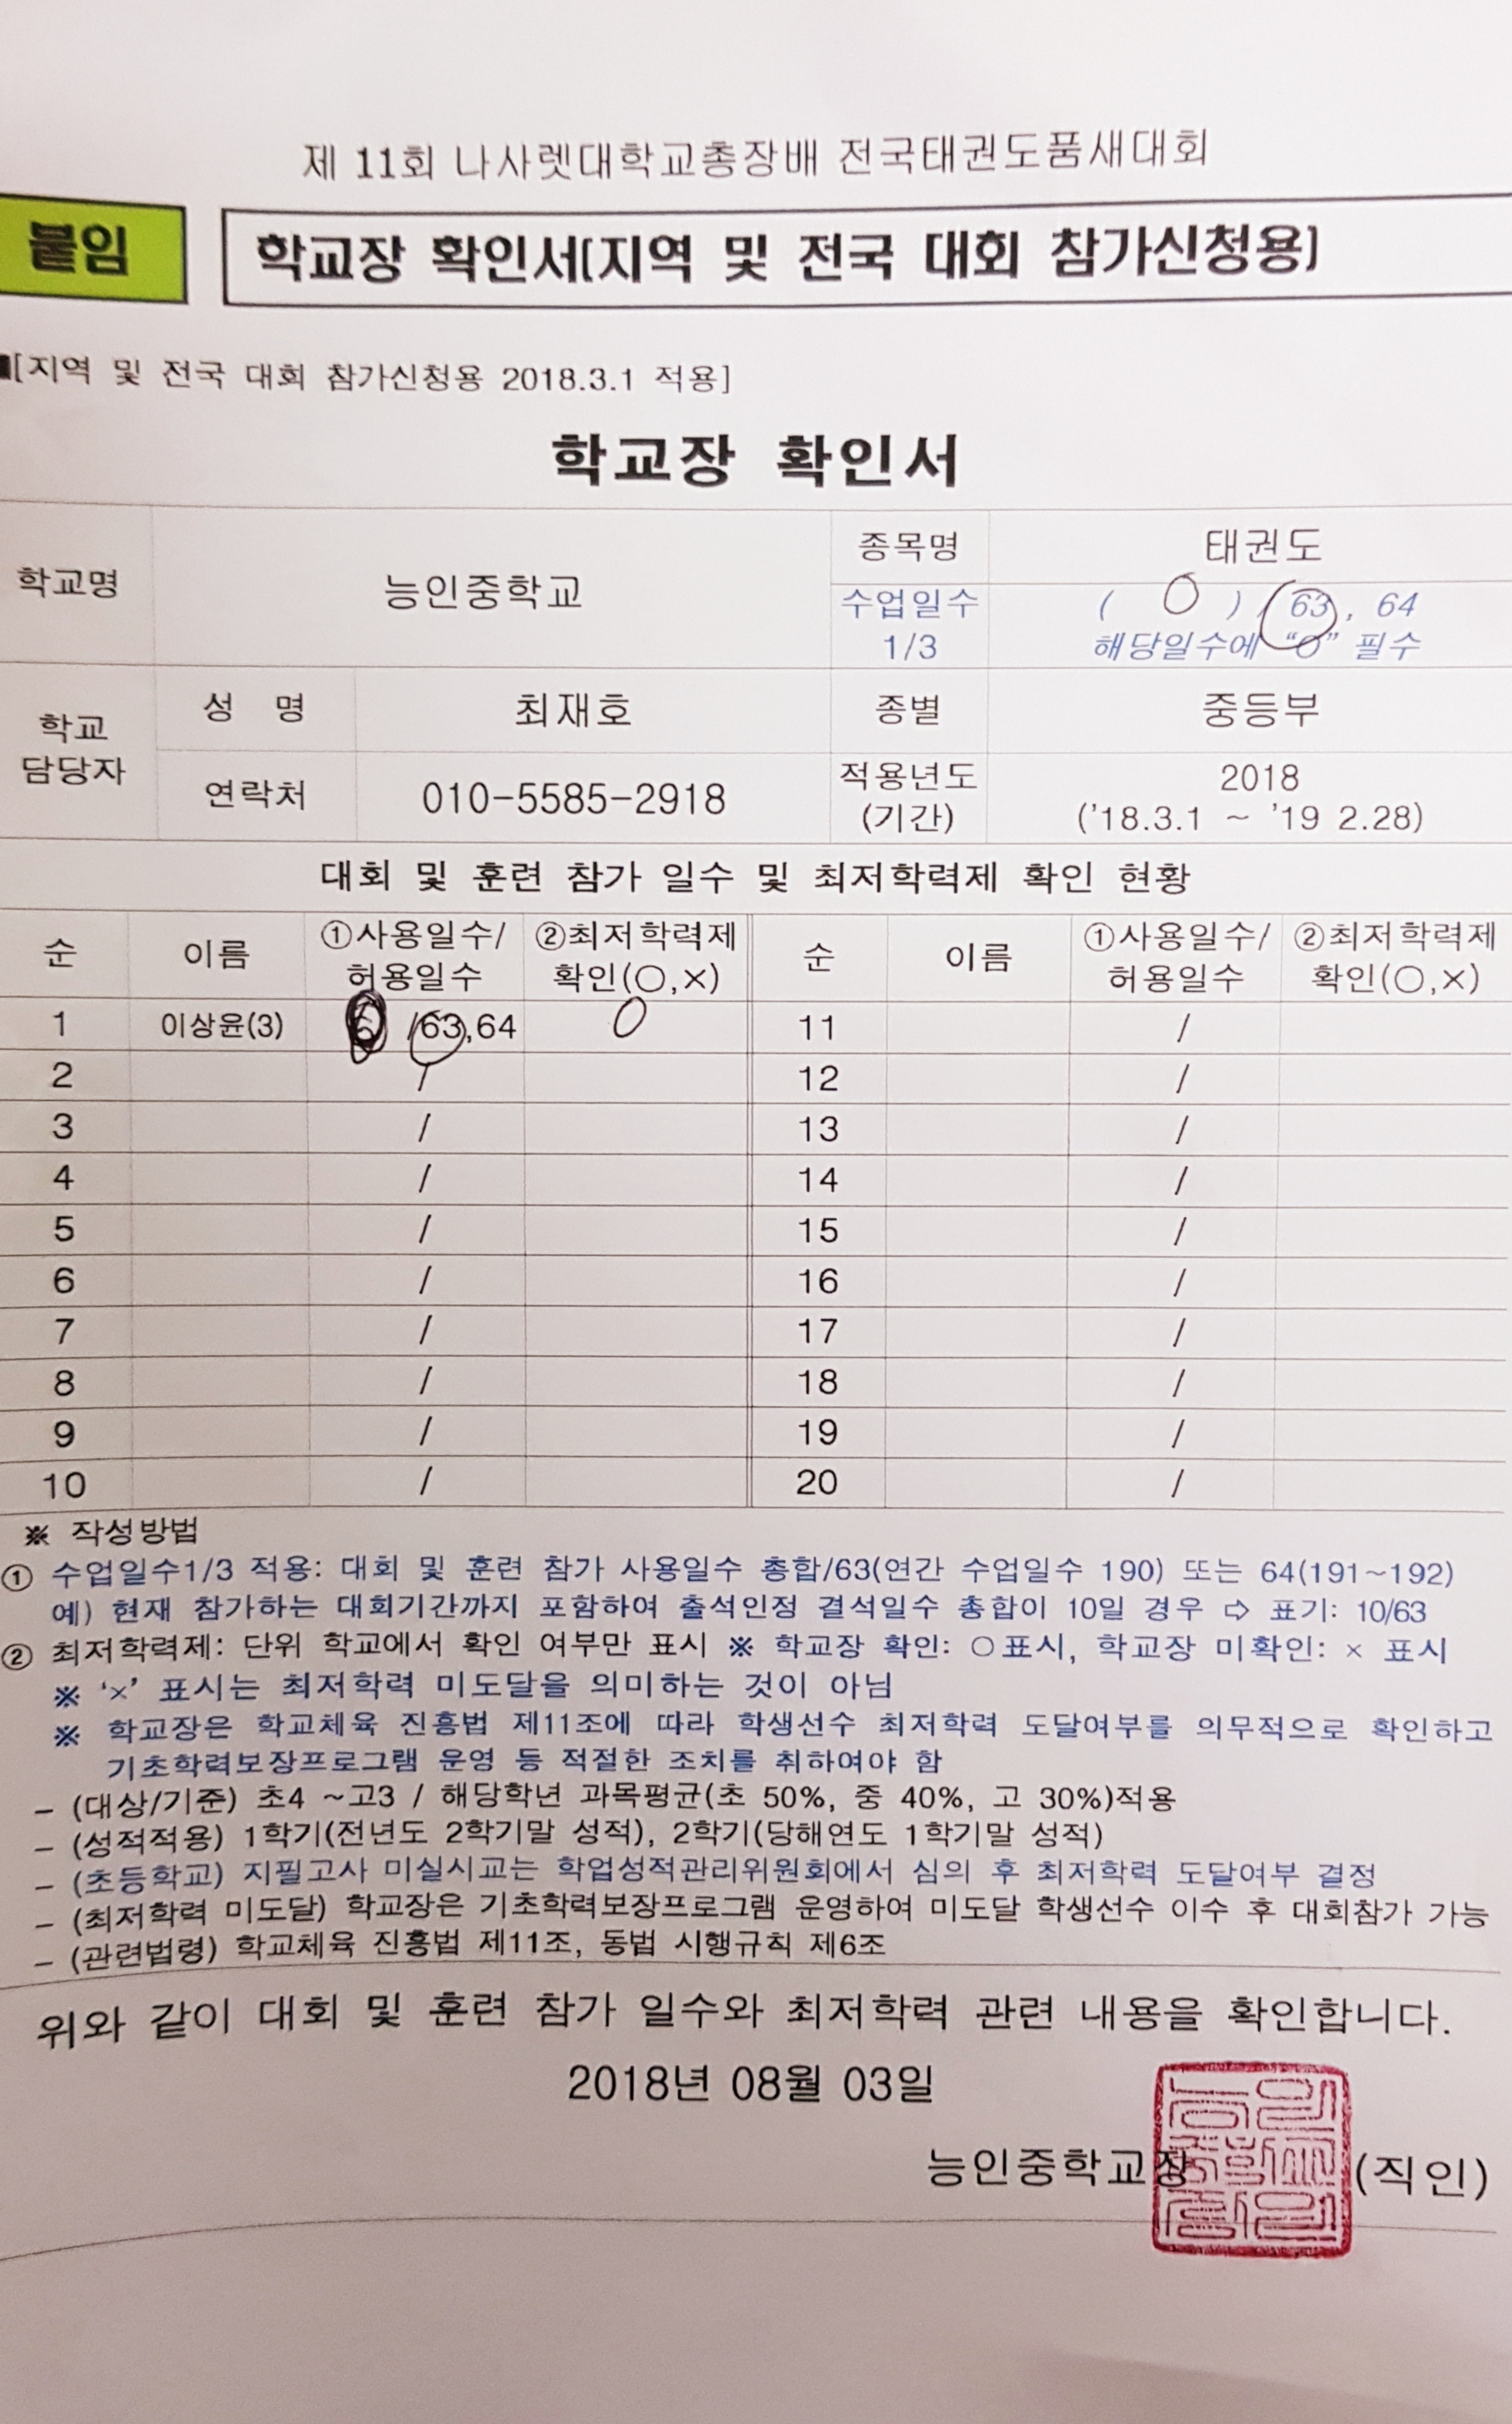 제 11회 나사렛대학교총장배 전국태권도품새대회
붙임
학교장 확인서[지역 및 전국 대회 참가신청용]
■[지역 및 전국 대회 참가신청용 2018.3.1 적용]
학교장 확인서
학교명 능인중학교 종목명 태권도
수업일수 1/3 ( O ) / 63, 64
해당일수에 “O” 필수
학교 담당자 성 명 최재호 종별 중등부
연락처 010-5585-2918 적용년도 (기간) 2018
('18.3.1 ~ '19 2.28)
대회 및 훈련 참가 일수 및 최저학력제 확인 현황
순 이름 ①사용일수/허용일수 ②최저학력제 확인(○,×) 순 이름 ①사용일수/허용일수 ②최저학력제 확인(○,×)
1 이상윤(3) /63,64 O 11 /
2 / 12 /
3 / 13 /
4 / 14 /
5 / 15 /
6 / 16 /
7 / 17 /
8 / 18 /
9 / 19 /
10 / 20 /
※ 작성방법
① 수업일수1/3 적용: 대회 및 훈련 참가 사용일수 총합/63(연간 수업일수 190) 또는 64(191~192)
예) 현재 참가하는 대회기간까지 포함하여 출석인정 결석일수 총합이 10일 경우 ⇨ 표기: 10/63
② 최저학력제: 단위 학교에서 확인 여부만 표시 ※ 학교장 확인: ○표시, 학교장 미확인: × 표시
※ ‘×’ 표시는 최저학력 미도달을 의미하는 것이 아님
※ 학교장은 학교체육 진흥법 제11조에 따라 학생선수 최저학력 도달여부를 의무적으로 확인하고
기초학력보장프로그램 운영 등 적절한 조치를 취하여야 함
- (대상/기준) 초4 ~고3 / 해당학년 과목평균(초 50%, 중 40%, 고 30%)적용
- (성적적용) 1학기(전년도 2학기말 성적), 2학기(당해연도 1학기말 성적)
- (초등학교) 지필고사 미실시교는 학업성적관리위원회에서 심의 후 최저학력 도달여부 결정
- (최저학력 미도달) 학교장은 기초학력보장프로그램 운영하여 미도달 학생선수 이수 후 대회참가 가능
- (관련법령) 학교체육 진흥법 제11조, 동법 시행규칙 제6조
위와 같이 대회 및 훈련 참가 일수와 최저학력 관련 내용을 확인합니다.
2018년 08월 03일
능인중학교장 (직인)